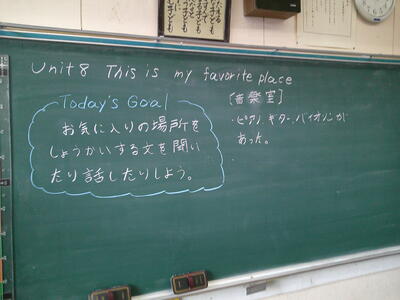 Unit 8 This is my favorite place
Today's Goal
お気に入りの場所を
しょうかいする文を聞い
たり話したりしよう。
[音楽室]
・ピアノ、ギター、バイオリンが
あった。
・